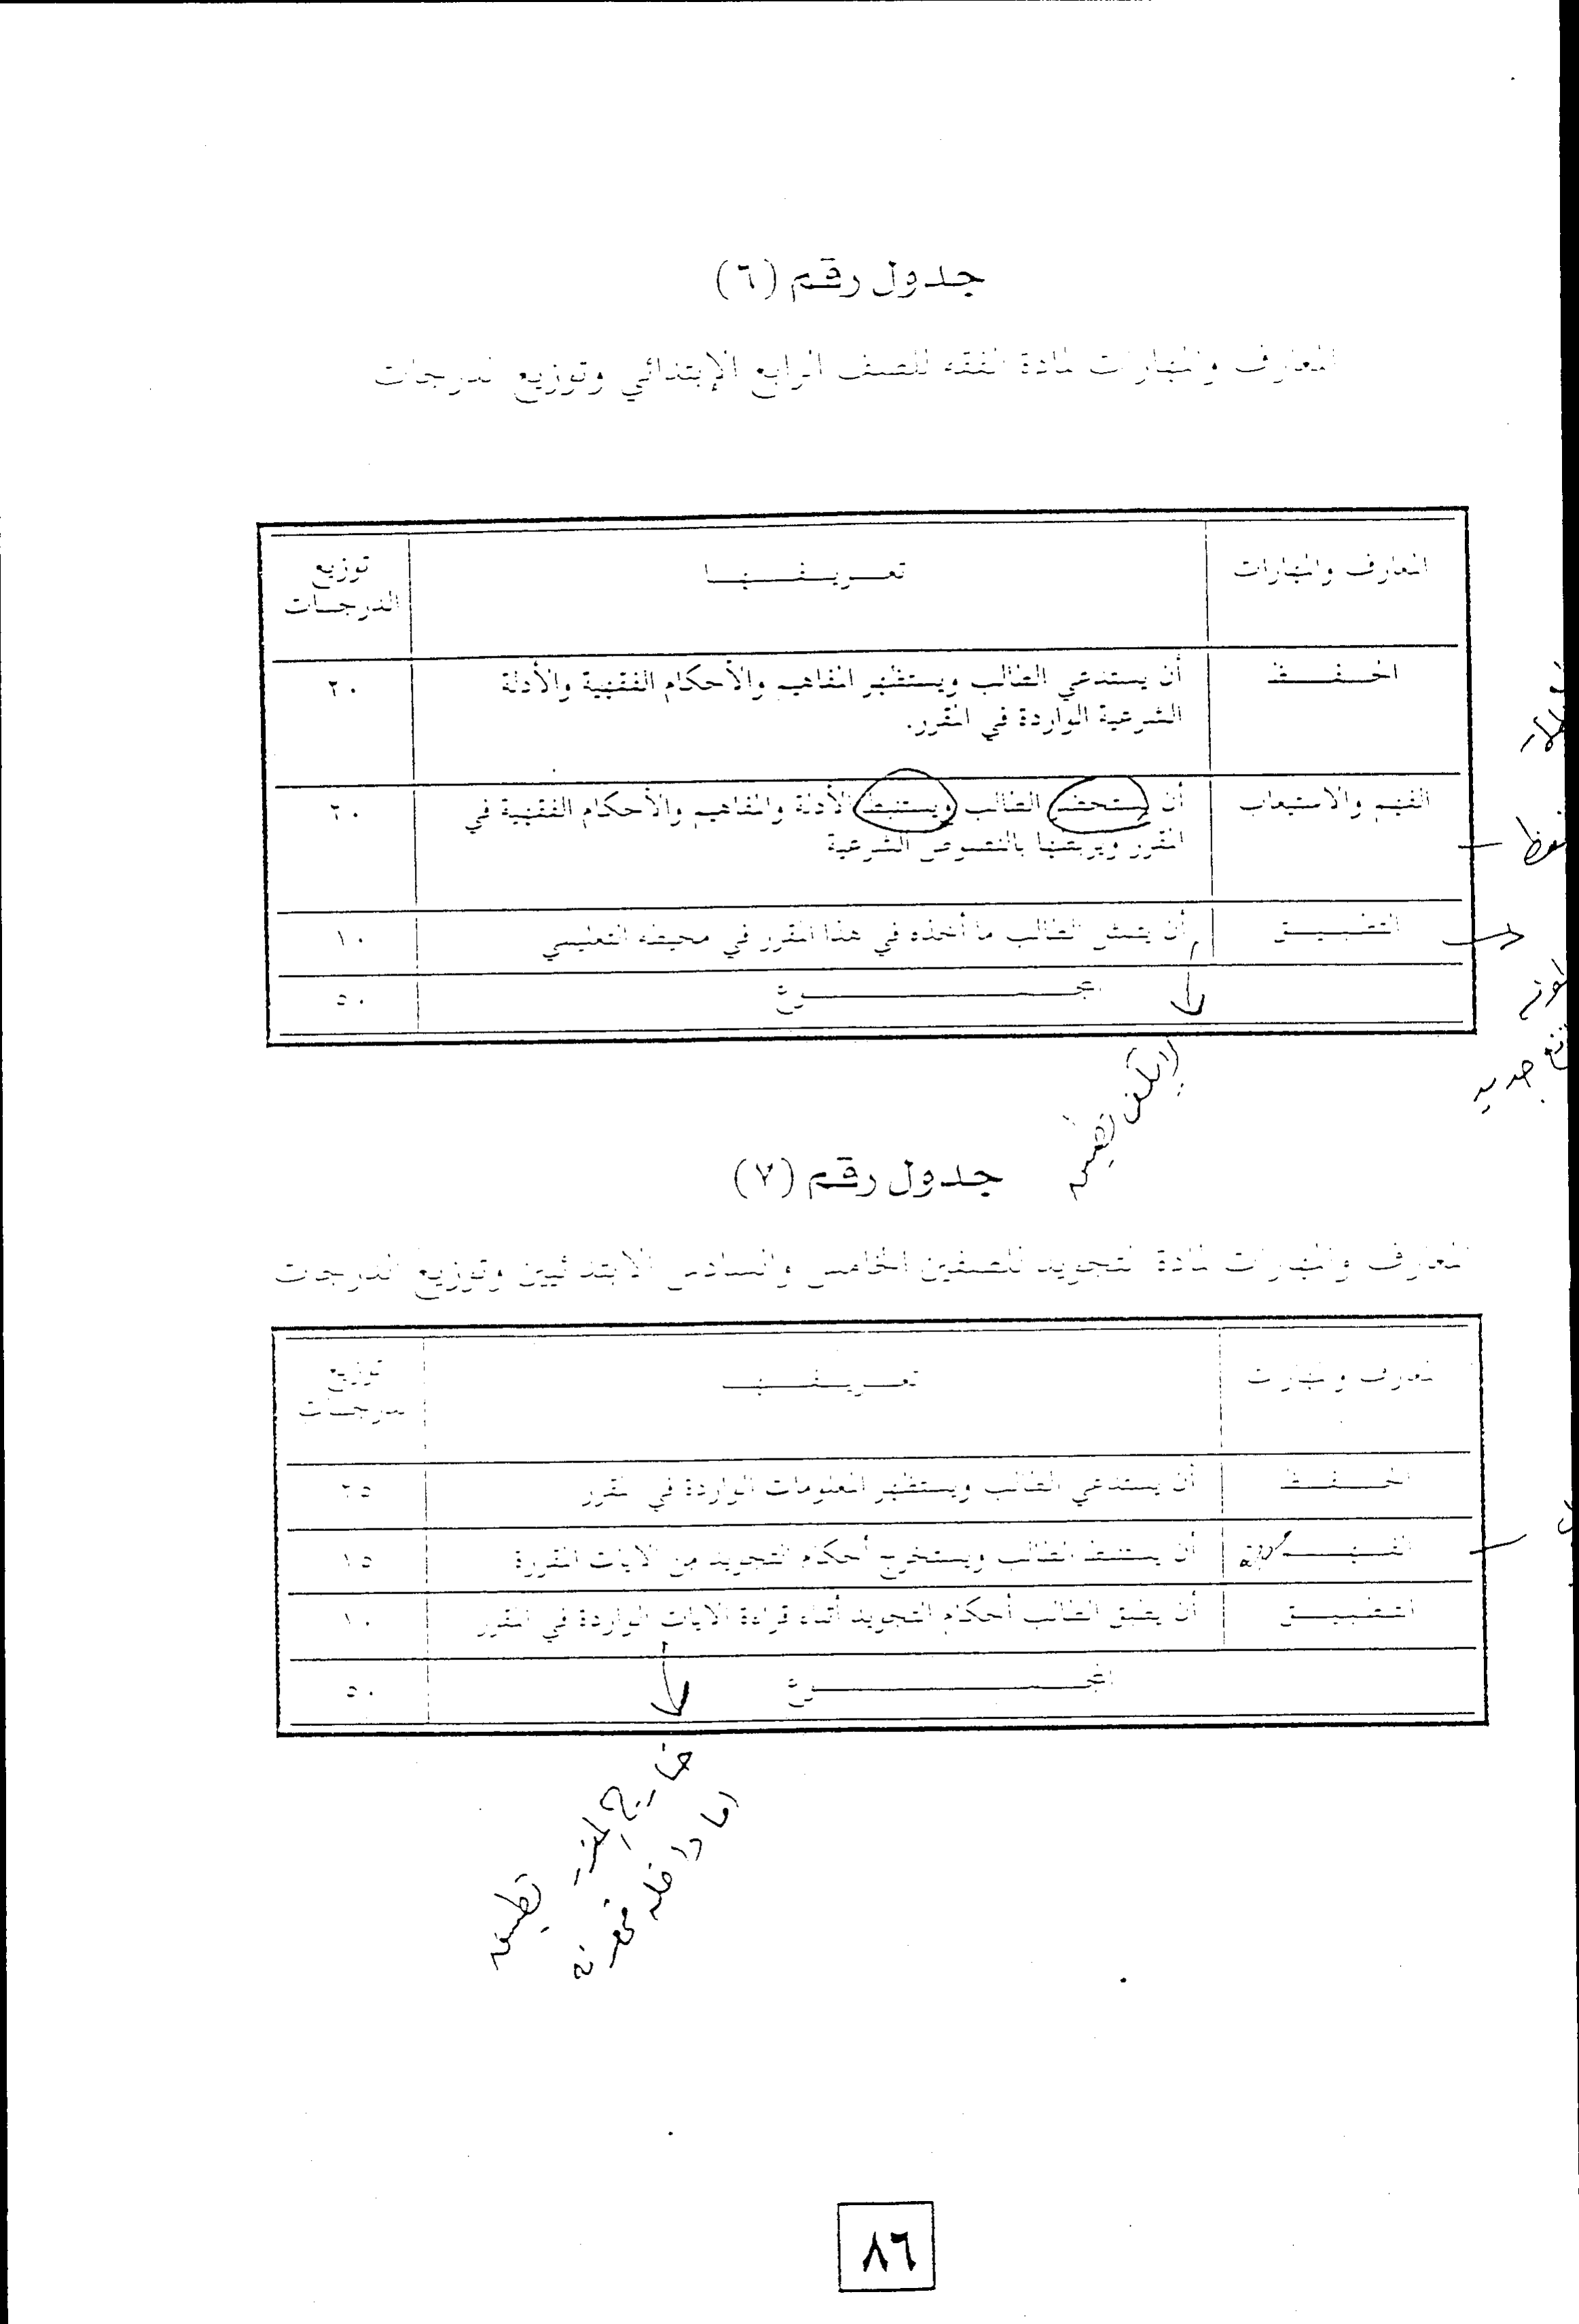 جدول رقم (٦)
المعارف والمهارات لمادة الفقه للصف الرابع الإبتدائي وتوزيع الدرجات
المعارف والمهارات
تعريفها
توزيع
الدرجات
الحفظ
أن يستدعي الطالب ويستظهر المفاهيم والأحكام الفقهية والأدلة
الشرعية الواردة في المقرر.
٢٠
الفهم والاستيعاب
أن يستحضر الطالب ويستنبط الأدلة والمفاهيم والأحكام الفقهية في
المقرر ويربطها بالنصوص الشرعية
٢٠
التطبيق
أن يتمثل الطالب ما أخذه في هذا المقرر في محيطه التعليمي
١٠
المجموع
٥٠
جديد
جدول رقم (٧)
المعارف والمهارات لمادة التجويد للصفين الخامس والسادس الابتدائيين وتوزيع الدرجات
المعارف والمهارات
تعريفها
توزيع
الدرجات
الحفظ
أن يستدعي الطالب ويستظهر المعلومات الواردة في المقرر
٢٥
الفهم
أن يستنبط الطالب ويستخرج أحكام التجويد من الآيات المقررة
١٥
التطبيق
أن يطبق الطالب أحكام التجويد أثناء قراءة الآيات الواردة في المقرر
١٠
المجموع
٥٠
خارج المقرر تطبيق
اما داخله فمعرفة
٨٦